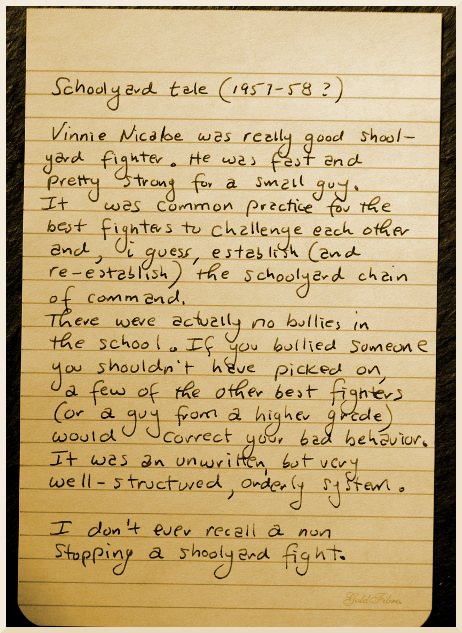 Schoolyard tale (1957-58?)
Vinnie Nicabe was really good shool-
yard fighter. He was fast and
pretty strong for a small guy.
It was common practice for the
best fighters to challenge each other
and, i guess, establish (and
re-establish) the schoolyard chain
of command.
There were actually no bullies in
the school. If you bullied someone
you shouldn't have picked on,
a few of the other best fighters
(or a guy from a higher grade)
would correct your bad behavior.
It was an unwritten, but very
well-structured, orderly system.
I don't ever recall a nun
stopping a shoolyard fight.
Gold Fibre